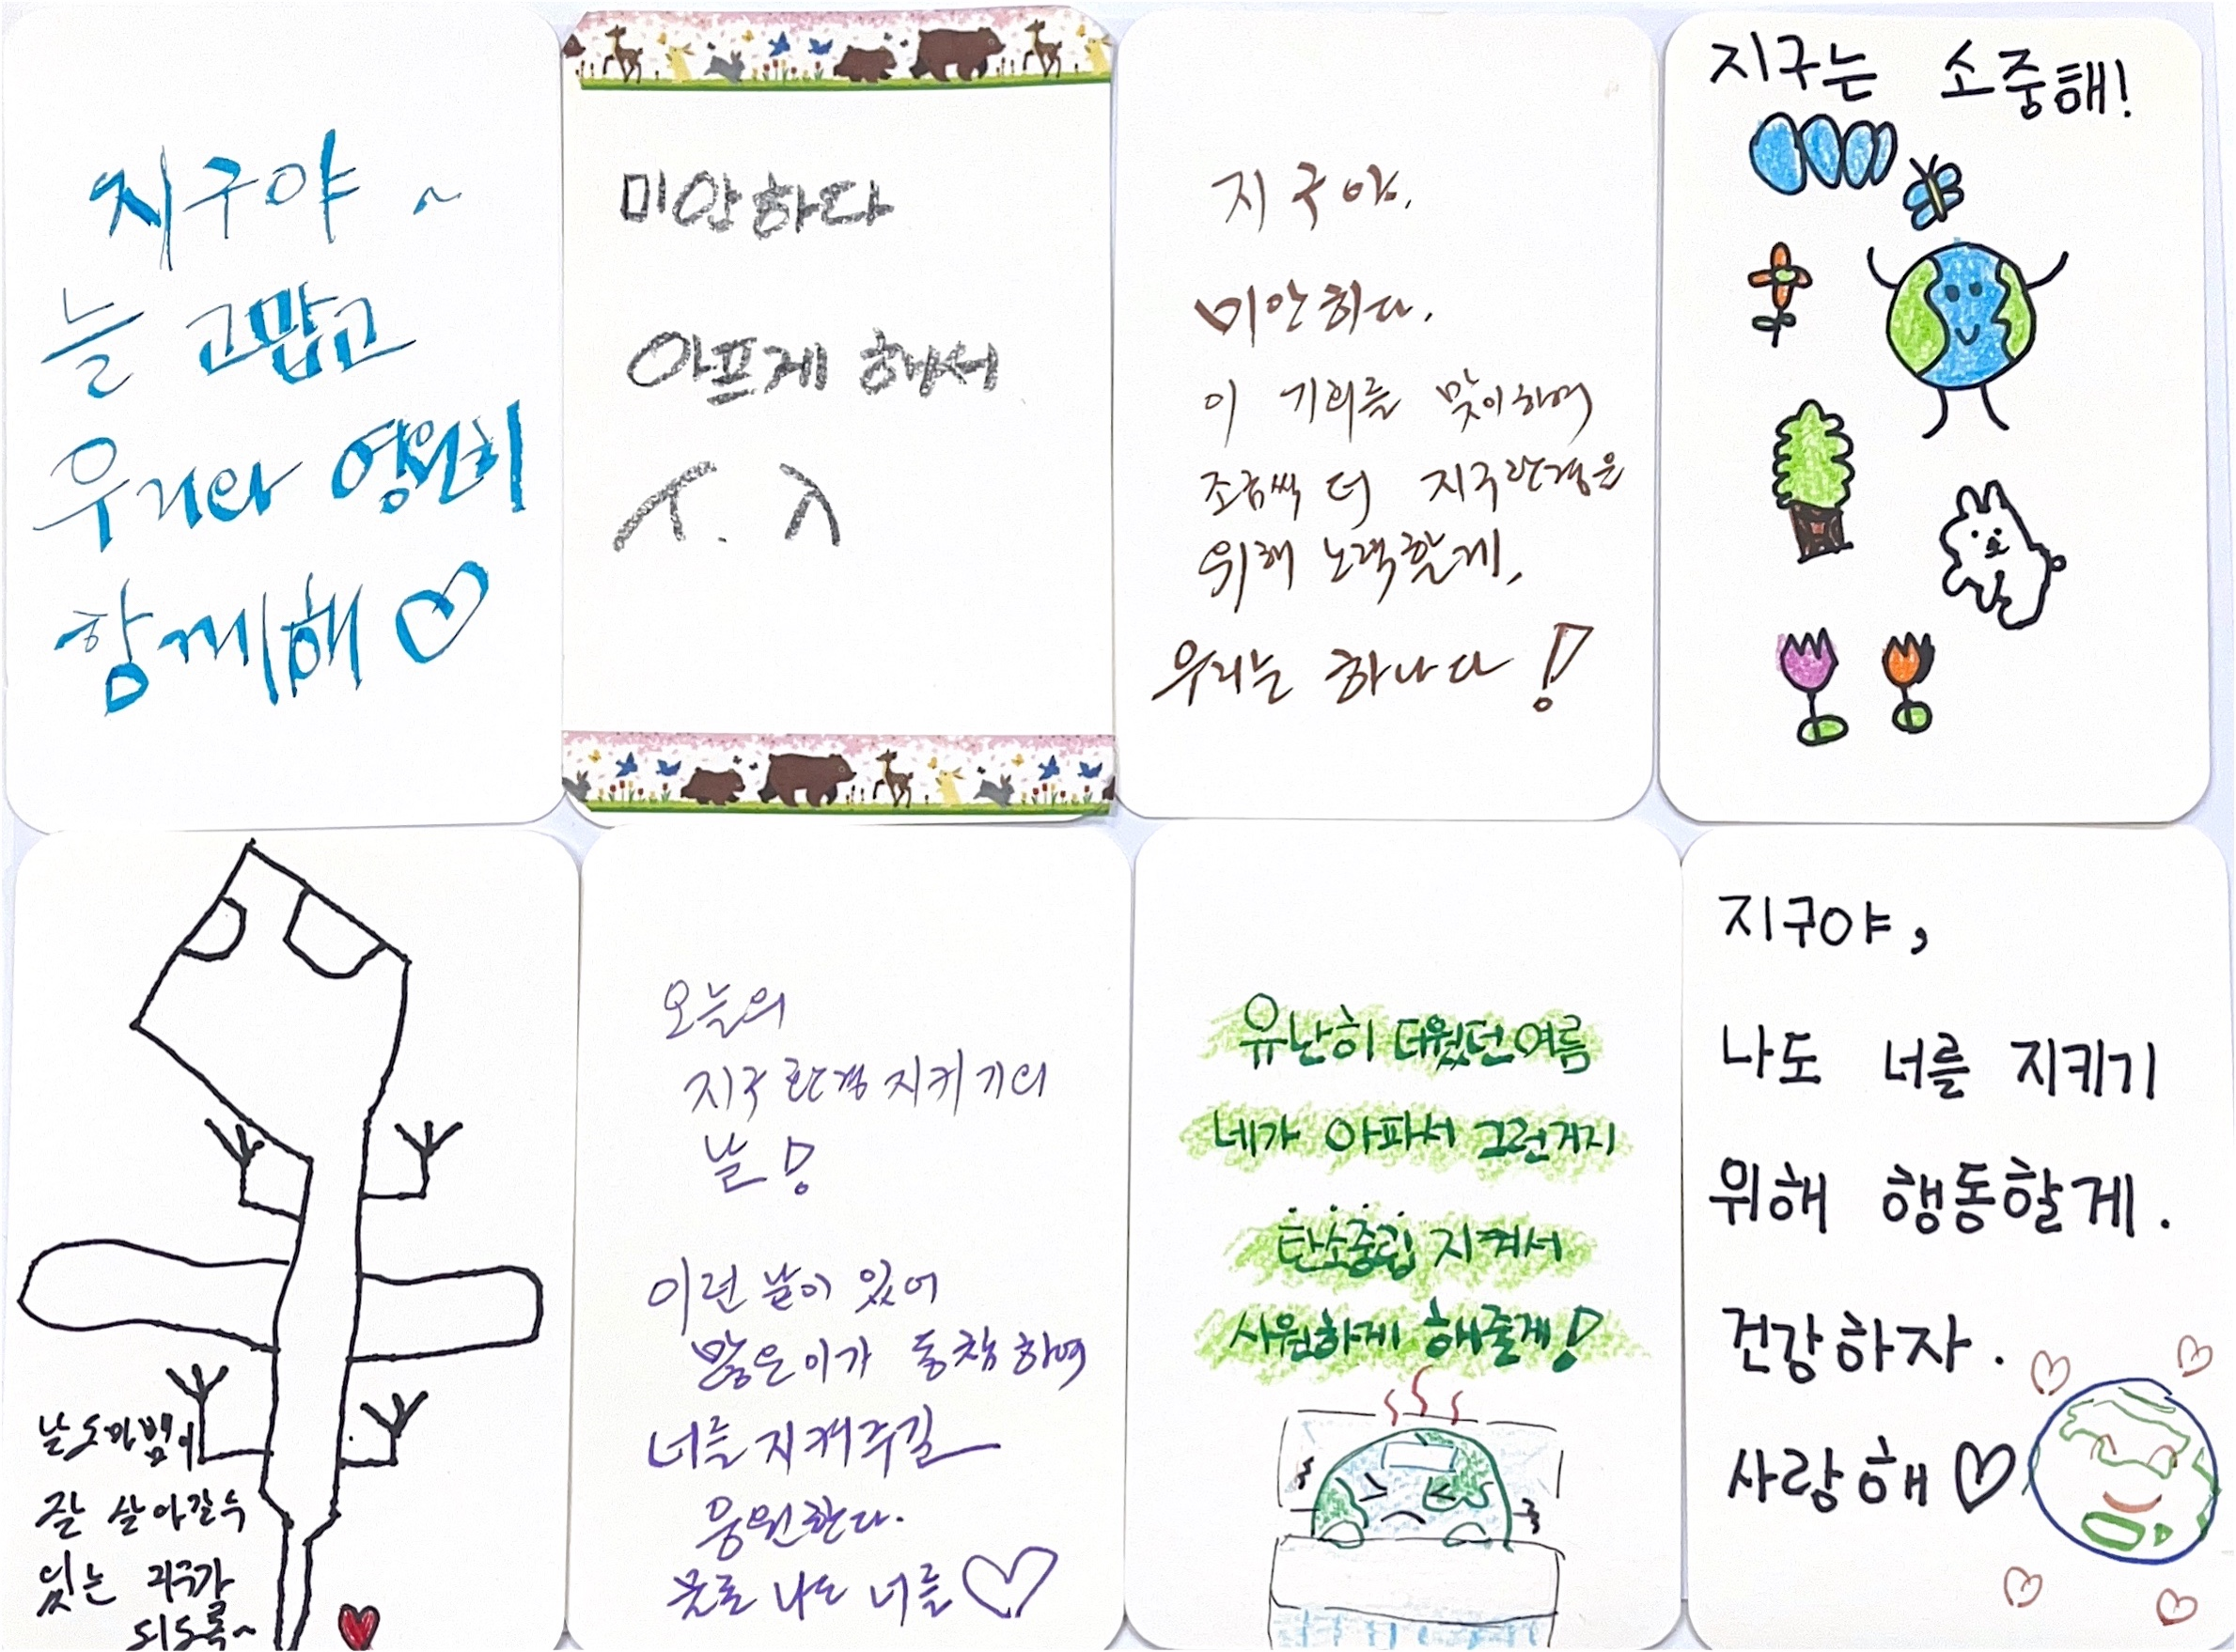 지구야~
늘 고맙고
우리와 영원히
함께해♡
미안하다
아프게 해서
ㅅ.ㅅ
지구야.
미안하다.
이 기회를 맞이하여
조금씩 더 지구환경을
위해 노력할게.
우리는 하나다!
지구는 소중해!
날도마뱀이
잘 살아갈 수
있는 지구가
되도록~
오늘의
지구환경지키기의
날!
이런 날이 있어
많은이가 동참하여
너를 지켜주길
응원한다.
물론 나도 너를♡
유난히 더웠던 여름
네가 아파서 그런거지
탄소중립 지켜서
시원하게 해줄게!
지구야,
나도 너를 지키기
위해 행동할게.
건강하자.
사랑해♡